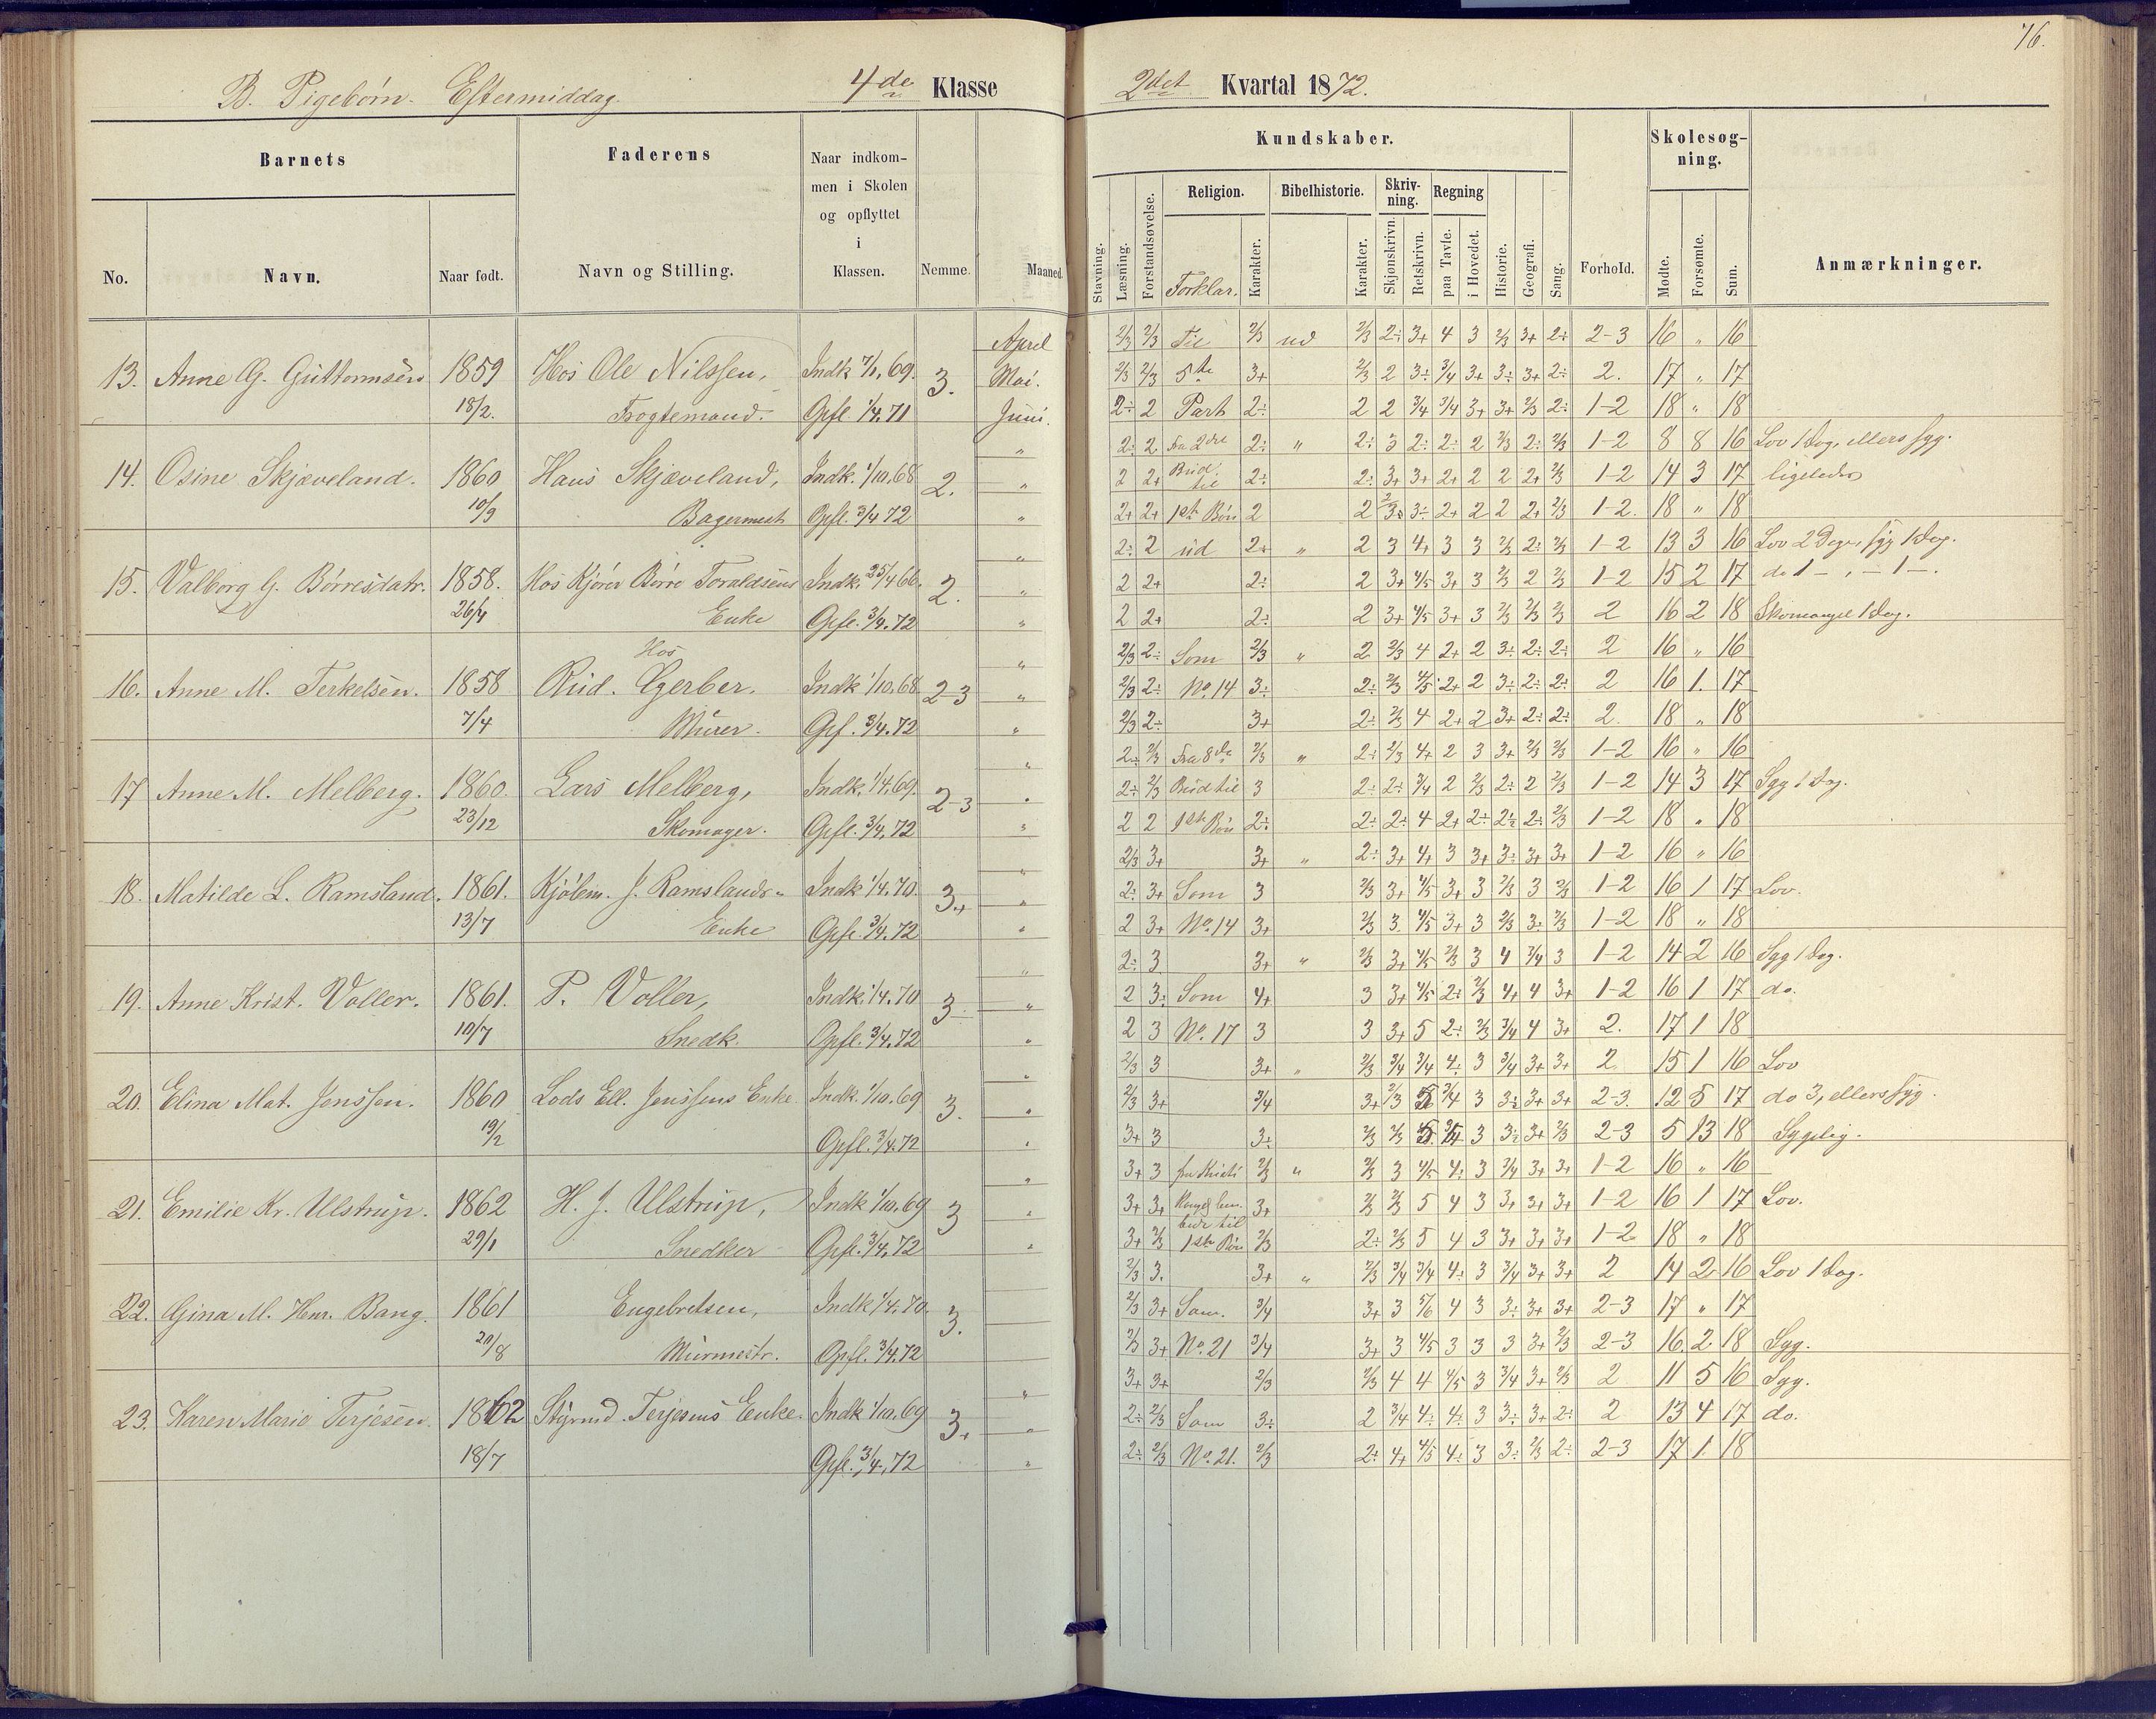 76.
B. Pigebørn. Eftermiddag. 4de Klasse
2det Kvartal 1872.
Barnets
Faderens
Naar indkommen i Skolen og opflyttet i Klassen.
Nemme.
Maaned.
No. Navn. Naar født. Navn og Stilling.
Kundskaber.
Skolesøgning.
Religion. Bibelhistorie. Skrivning. Regning
Stavning. Læsning. Forstandsøvelse. Forklar. Karakter. Karakter. Skjønskrivn. Retskrivn. paa Tavle. i Hovedet. Historie. Geografi. Sang. Forhold. Mødte. Forsømte. Sum. Anmærkninger.
April 2/3 2/3 Til 2/3 ud 2/3 2÷ 3+ 4 3 2/3 3+ 2÷ 2-3 16 " 16
13. Anne G. Guttormsen 1859 Hos Ole Nilssen, Indk 7/1, 69. 3. Mai. 2/3 2/3 5te 3+ 2/3 2 3÷ 3/4 3+ 3÷ 3+ 2÷ 2. 17 " 17
18/2. Fragtemand. Opfl 1/4. 71 Juni. 2÷ 2 Part 2÷ 2 2 3/4 3/4 3+ 3+ 2/3 2÷ 1-2 18 " 18
" 2÷ 2 Fra 2det 2÷ " 2÷ 3 2÷ 2÷ 2 2/3 2÷ 2/3 1-2 8 8 16 Lov 1 Dag, ellers syg.
14. Osine Skjæveland. 1860 Hans Skjæveland, Indk. 1/10. 68 2. " 2 2+ Bud til 2÷ 2÷ 3+ 3+ 2+ 2 2 2+ 2/3 1-2 14 3 17 ligeledes
10/9 Bagermest Opfl. 3/4 72 " 2+ 2+ 1ste Bøn 2 2 3÷ 2+ 2 2 2+ 2/3 1-2. 18 " 18
" 2÷ 2 ud 2+ " 2 3 4+ 3 3 2/3 2÷ 2/3 1-2 13 3 16 Lov 2 Dage, syg 1 Dag.
15. Valborg G. Børresdatr. 1858. Hos Kjører Børre Toraldsens Indk. 25/4 66. 2. " 2 2+ 2÷ 2 3+ 4/5 3+ 3 2/3 2 2/3 1-2 15 2 17 do 1 – , – 1 –.
26/4 Enke Opfl. 3/4. 72 " 2 2+ 2÷ 2 3+ 4/5 3+ 3 2/3 2/3 2/3 2 16 2 18 Skomangel 1 Dag.
Hos
" 2/3 2÷ Som 2/3 " 2 2/3 4 2+ 2 3÷ 2÷ 2÷ 2 16 " 16
16. Anne M. Terkelsen. 1858 Rud. Gerber. Indk 1/10. 68 2-3 " 2/3 2÷ No. 14 3÷ 2÷ 2/3 4/5 2+ 2 3÷ 2÷ 2÷ 2 16 1. 17
7/4 Murer. Opf. 3/4. 72 " 2/3 2÷ 3+ 2÷ 2/3 4 2+ 2 3+ 2÷ 2÷ 2. 18 " 18
" 2÷ 2/3 Fra 8de 2/3 " 2÷ 2/3 4+ 2 3 3+ 2/3 2/3 1-2 16 " 16
17 Anne M. Melberg. 1860. Lars Melberg, Indk. 1/4. 69. 2-3 " 2÷ 2/3 Bud til 3 2÷ 2÷ 3/4 2 2/3 2÷ 2 2/3 1-2 14 3 17 Syg 1 Dag.
23/12 Skomager. Opfl. 3/4. 72 " 2 2 1ste Bøn 2÷ 2÷ 2÷ 4 2+ 2÷ 2÷ 2÷ 2/3 1-2 18 " 18
" 2/3 3+ 3+ " 2÷ 3+ 4+ 3 3+ 3÷ 3+ 3+ 1-2 16 " 16
18. Matilde L. Ramsland. 1861. Kjøbm. J. Ramslands Indk 1/4. 70. 3+ " 2÷ 3+ Som 3 2/3 3+ 4/5 3+ 3 2/3 3 2/3 1-2 16 1 17 Lov.
13/7 Enke Opfl. 3/4. 72 " 2 3+ No. 14 3+ 2/3 3 4/5 3+ 3 2/3 3÷ 2/3 1-2 18 " 18
" 2÷ 3 3+ " 2/3 3+ 4/5 2/3 3 4 3/4 3 1-2 14 2 16 Syg 1 Dag.
19. Anne Krist. Voller. 1861. P. Voller, Indk. 1/4. 70 3 " 2 3÷ Som 4+ 3 3+ 4/5 2÷ 2/3 4+ 4 3+ 1-2 16 1 17 do.
10/7 Snedk. Opfl. 3/4. 72 " 2 3 No. 17 3 3 3+ 5 2÷ 2/3 3/4 4 3+ 2. 17 1 18
" 2/3 3 3+ " 2/3 3/4 3/4 4÷ 3 3/4 3+ 3+ 2 15 1 16 Lov
20. Elina Mat. Jenssen. 1860 Lods Ell. Jenssens Enke Indk. 1/10. 69 3. " 2/3 3+ 3/4 3+ 2/3 5 3/4 3 3÷ 3+ 3+ 2-3. 12 5 17 do 3, ellers syg.
19/2 Opfl. 3/4. 72 " 3+ 3 3÷ 2/3 2/3 3 3÷ 3+ 2/3 2-3 5 13 18 Sygelig.
" 3+ 3 fra Kristi 2/3 " 2/3 3 4/5 4÷ 3 3/4 3+ 3+ 1-2 16 " 16
21. Emilie Kr. Ulstrup. 1862 H. J. Ulstrup, Indk 1/10. 69 3 " 3+ 3+ 3+ 2/3 2/3 5 4 3 3+ 3+ 3+ 1-2 16 1 17 Lov.
29/1 Snedker Opfl. 3/4. 72 " 3+ 2/3 til 1ste Bøn 2/3 2÷ 2/3 5 4 3 3+ 3+ 3+ 1-2 18 " 18
2/3 3. 3+ " 2/3 3/4 3/4 4÷ 3 3/4 3+ 3+ 2 14 2 16 Lov 1 Dag.
22. Gina M. Henr. Bang. 1861 Engebretsen, Indk 1/4. 70. 3. 2/3 3+ Som. 3/4 3+ 3 5/6 4 3 3÷ 3+ 3+ 2-3 17 " 17
20/8 Murmestr. Opfl. 3/4. 72 2/3 3+ No. 21 3/4 3+ 3 4/5 3 3 3 3+ 2/3 2-3 16. 2 18 Syg.
" 3+ 3+ 2/3 2/3 4 4 4/5 3 3/4 3+ 2/3 2 11 5 16 Syg.
23. Karen Marie Terjesen. 1862 Styrmd. Terjesens Enke. Indk 1/10. 69 3+ " 2÷ 2/3 Som 3÷ 2 3/4 4÷ 4÷ 3 3÷ 3+ 2÷ 2 13 4 17 do.
18/7 Opfl. 3/4, 72 " 2÷ 2/3 No. 21. 2/3 2÷ 4+ 4/5 4÷ 3 3÷ 2/3 2÷ 2-3 17 1 18